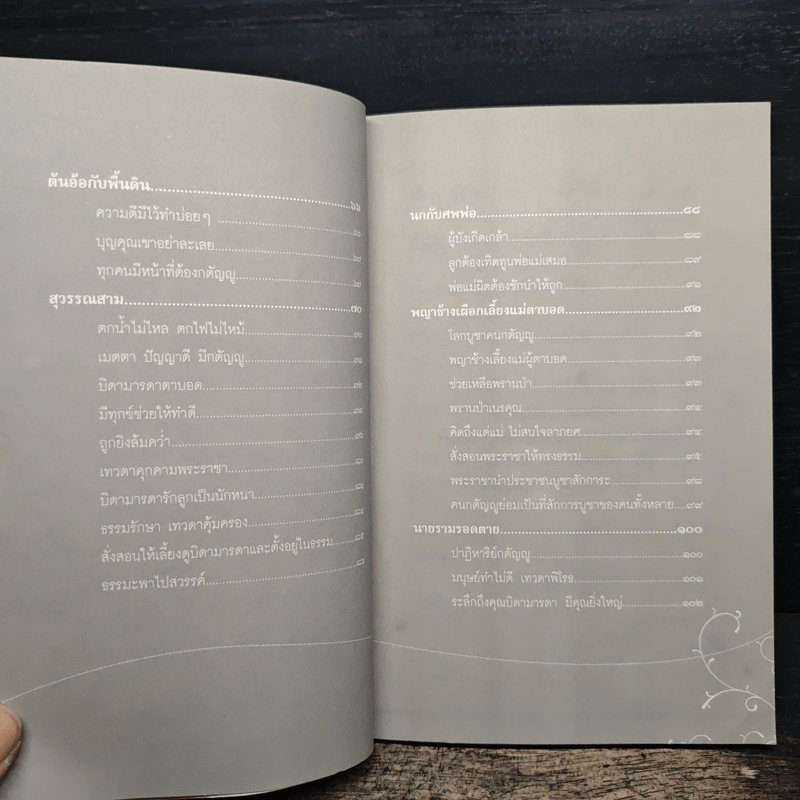 ต้นอ้อกับพื้นดิน..........๖๖
ความดีมีไว้ทำบ่อยๆ ..........๖๖
บุญคุณเขาอย่าละเลย..........
ทุกคนมีหน้าที่ต้องกตัญญู..........
สุวรรณสาม..........๗๐
ตกน้ำไม่ไหล ตกไฟไม่ไหม้..........
เมตตา ปัญญาดี มีกตัญญู..........
บิดามารดาตาบอด..........
มีทุกข์ช่วยให้ทำดี..........
ถูกยิงล้มคว่ำ..........
เทวดาคุกคามพระราชา..........
บิดามารดารักลูกเป็นนักหนา..........
ธรรมรักษา เทวดาคุ้มครอง..........
สั่งสอนให้เลี้ยงดูบิดามารดาและตั้งอยู่ในธรรม..........๘๕
ธรรมะพาไปสวรรค์..........
นกกับศพพ่อ..........๘๘
ผู้บังเกิดเกล้า..........๘๘
ลูกต้องเทิดทูนพ่อแม่เสมอ..........๘๙
พ่อแม่ผิดต้องชักนำให้ถูก..........๙๑
พญาช้างเผือกเลี้ยงแม่ตาบอด..........๙๒
โลกบูชาคนกตัญญู..........๙๒
พญาช้างเลี้ยงแม่ผู้ตาบอด..........๙๓
ช่วยเหลือพรานป่า..........๙๓
พรานป่าเนรคุณ..........๙๔
คิดถึงแต่แม่ ไม่สนใจลาภยศ..........๙๔
สั่งสอนพระราชาให้ทรงธรรม..........๙๕
พระราชานำประชาชนบูชาสักการะ..........๙๘
คนกตัญญูย่อมเป็นที่สักการบูชาของคนทั้งหลาย..........๙๙
นายรามรอดตาย..........๑๐๐
ปาฏิหาริย์กตัญญู..........๑๐๐
มนุษย์ทำไม่ดี เทวดาพิโรธ..........๑๐๑
ระลึกถึงคุณบิดามารดา มีคุณยิ่งใหญ่..........๑๐๒